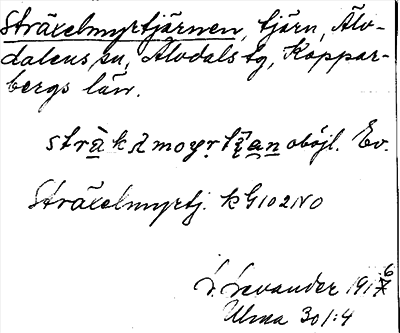 Sträxelmyrtjärnen, tjärn, Älv-
dalens sn, Älvdals tg, Koppar-
bergs län.
oböjl. Ev.
Sträxelmyrtj. kG102NO
L. Levander 1916
Ulma 301:4